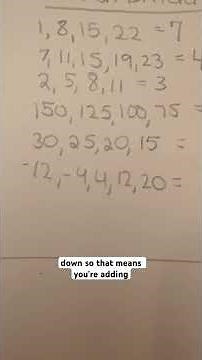 1, 8, 15, 22 = 7
7, 11, 15, 19, 23 = 4
2, 5, 8, 11 = 3
150, 125, 100, 75 =
30, 25, 20, 15 =
-12, -4, 4, 12, 20 =
down so that means
you're adding